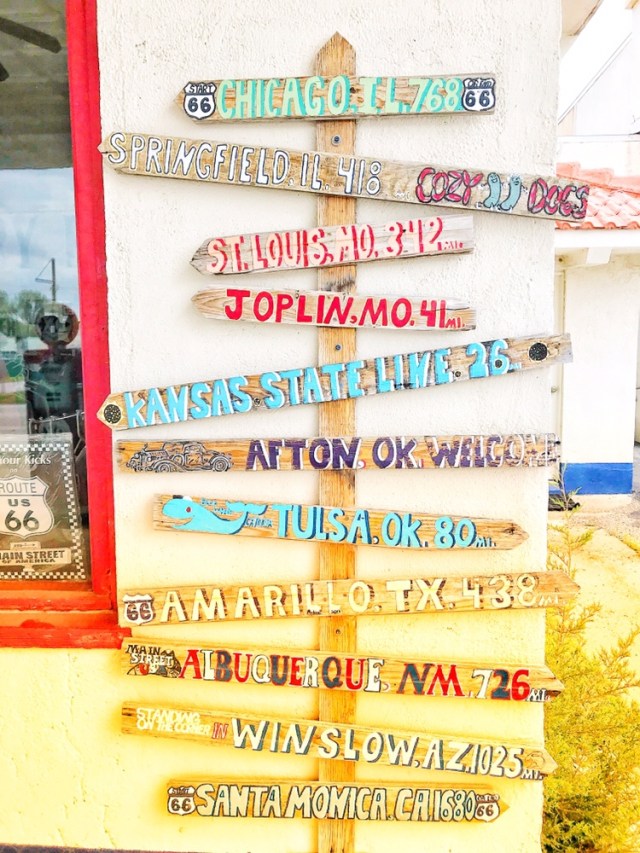 START 66 CHICAGO, IL, 768 66
SPRINGFIELD, IL, 418 COZY DOGS
ST. LOUIS, MO. 342 MI.
JOPLIN, MO. 41 MI.
KANSAS STATE LINE. 26
AFTON, OK. WELCOME
TULSA, OK. 80 MI.
66 AMARILLO, TX. 438 MI.
MAIN STREET ALBUQUERQUE, NM. 726 MI.
STANDING ON THE CORNER IN WINSLOW, AZ. 1025 MI.
66 SANTA MONICA, CA. 1680 66
Your Kicks
ROUTE
US
66
MAIN STREET
OF AMERICA